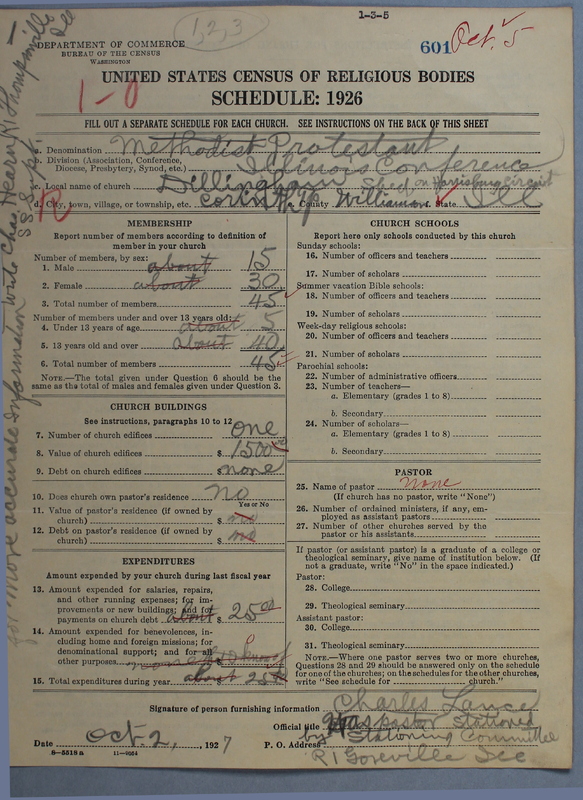 1-3-5
1, 2, 3
DEPARTMENT OF COMMERCE
BUREAU OF THE CENSUS
WASHINGTON
601 Oct. 5
UNITED STATES CENSUS OF RELIGIOUS BODIES
1-0
SCHEDULE: 1926
FILL OUT A SEPARATE SCHEDULE FOR EACH CHURCH. SEE INSTRUCTIONS ON THE BACK OF THIS SHEET
a. Denomination Methodist Protestant
b. Division (Association, Conference, Diocese, Presbytery, Synod, etc.) Illinois Conference
c. Local name of church Dillingham on Harrisburg Circuit
d. City, town, village, or township, etc. Corinth e. County Williamson State Ill
R
for more accurate information write Chas. Hearn R1 Thompsonville Ill
S.S. Supt
MEMBERSHIP
Report number of members according to definition of
member in your church
Number of members, by sex:
1. Male about 15
2. Female about 30
3. Total number of members 45
Number of members under and over 13 years old:
4. Under 13 years of age about 5
5. 13 years old and over about 40
6. Total number of members 45
NOTE.—The total given under Question 6 should be the
same as the total of males and females given under Question 3.
CHURCH BUILDINGS
See instructions, paragraphs 10 to 12
7. Number of church edifices one
8. Value of church edifices $ 1500 00
9. Debt on church edifices $ none
10. Does church own pastor's residence no
Yes or No
11. Value of pastor's residence (if owned by
church) $ no
12. Debt on pastor's residence (if owned by
church) $ no
EXPENDITURES
Amount expended by your church during last fiscal year
13. Amount expended for salaries, repairs,
and other running expenses; for im-
provements or new buildings; and for
payments on church debt about $ 25 00
14. Amount expended for benevolences, in-
cluding home and foreign missions; for
denominational support; and for all
other purposes none
15. Total expenditures during year about $ 25
CHURCH SCHOOLS
Report here only schools conducted by this church
Sunday schools:
16. Number of officers and teachers
17. Number of scholars
Summer vacation Bible schools:
18. Number of officers and teachers
19. Number of scholars
Week-day religious schools:
20. Number of officers and teachers
21. Number of scholars
Parochial schools:
22. Number of administrative officers
23. Number of teachers—
a. Elementary (grades 1 to 8)
b. Secondary
24. Number of scholars—
a. Elementary (grades 1 to 8)
b. Secondary
PASTOR
25. Name of pastor None
(If church has no pastor, write "None")
26. Number of ordained ministers, if any, em-
ployed as assistant pastors
27. Number of other churches served by the
pastor or his assistants
If pastor (or assistant pastor) is a graduate of a college or
theological seminary, give name of institution below. (If
not a graduate, write "No" in the space indicated.)
Pastor:
28. College
29. Theological seminary
Assistant pastor:
30. College
31. Theological seminary
NOTE.—Where one pastor serves two or more churches,
Questions 28 and 29 should be answered only on the schedule
for one of the churches; on the schedules for the other churches,
write "See schedule for church."
Signature of person furnishing information Charles Lance
Official title was pastor stationed
by Stationing Committee
Date Oct. 2, 1927 P. O. Address R1 Goreville Ill
8-5518 a 11-9064